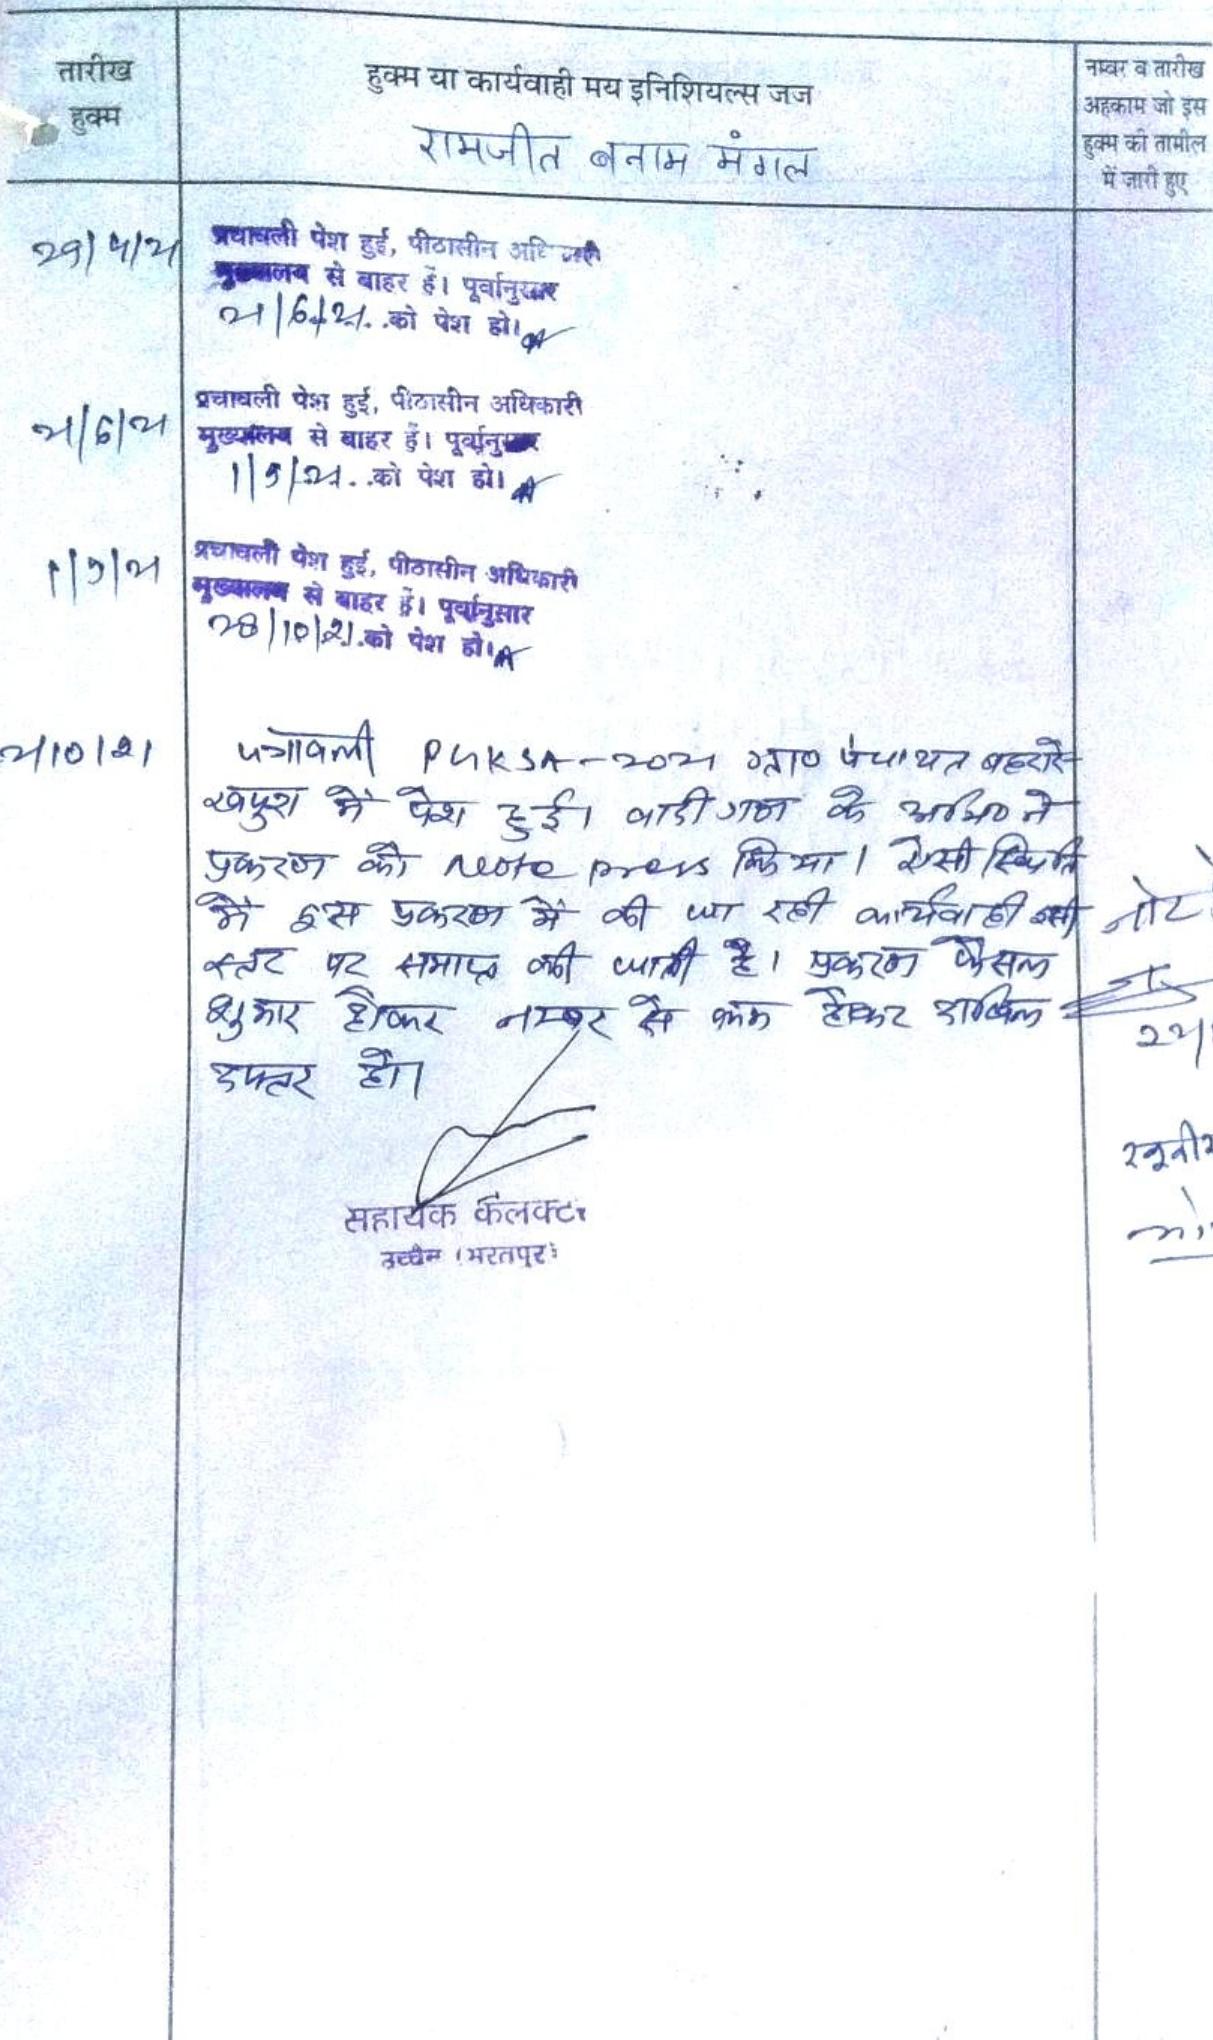 तारीख
हुक्म
हुक्म या कार्यवाही मय इनिशियल्स जज
रामजीत बनाम मंगल
नम्बर व तारीख
अहकाम जो इस
हुक्म की तामील
में जारी हुए
29/4/21
पत्रावली पेश हुई, पीठासीन अधिकारी
मुख्यालय से बाहर हैं। पूर्वानुसार
21/6/21..को पेश हो।
21/6/21
पत्रावली पेश हुई, पीठासीन अधिकारी
मुख्यालय से बाहर हैं। पूर्वानुसार
1/9/21..को पेश हो।
1/9/21
पत्रावली पेश हुई, पीठासीन अधिकारी
मुख्यालय से बाहर हैं। पूर्वानुसार
28/10/21.को पेश हो।
पत्रावली 2021 ग्राम पंचायत
में पेश हुई। वादीगण के अभि० ने
प्रकरण को Note press किया। ऐसी स्थिति
में इस प्रकरण में की जा रही कार्यवाही इसी
स्तर पर समाप्त की जाती है। प्रकरण फैसल
शुमार होकर नम्बर से कम होकर दाखिल
दफ्तर हो।
सहायक कलक्टर
उच्चैन (भरतपुर)
नोट